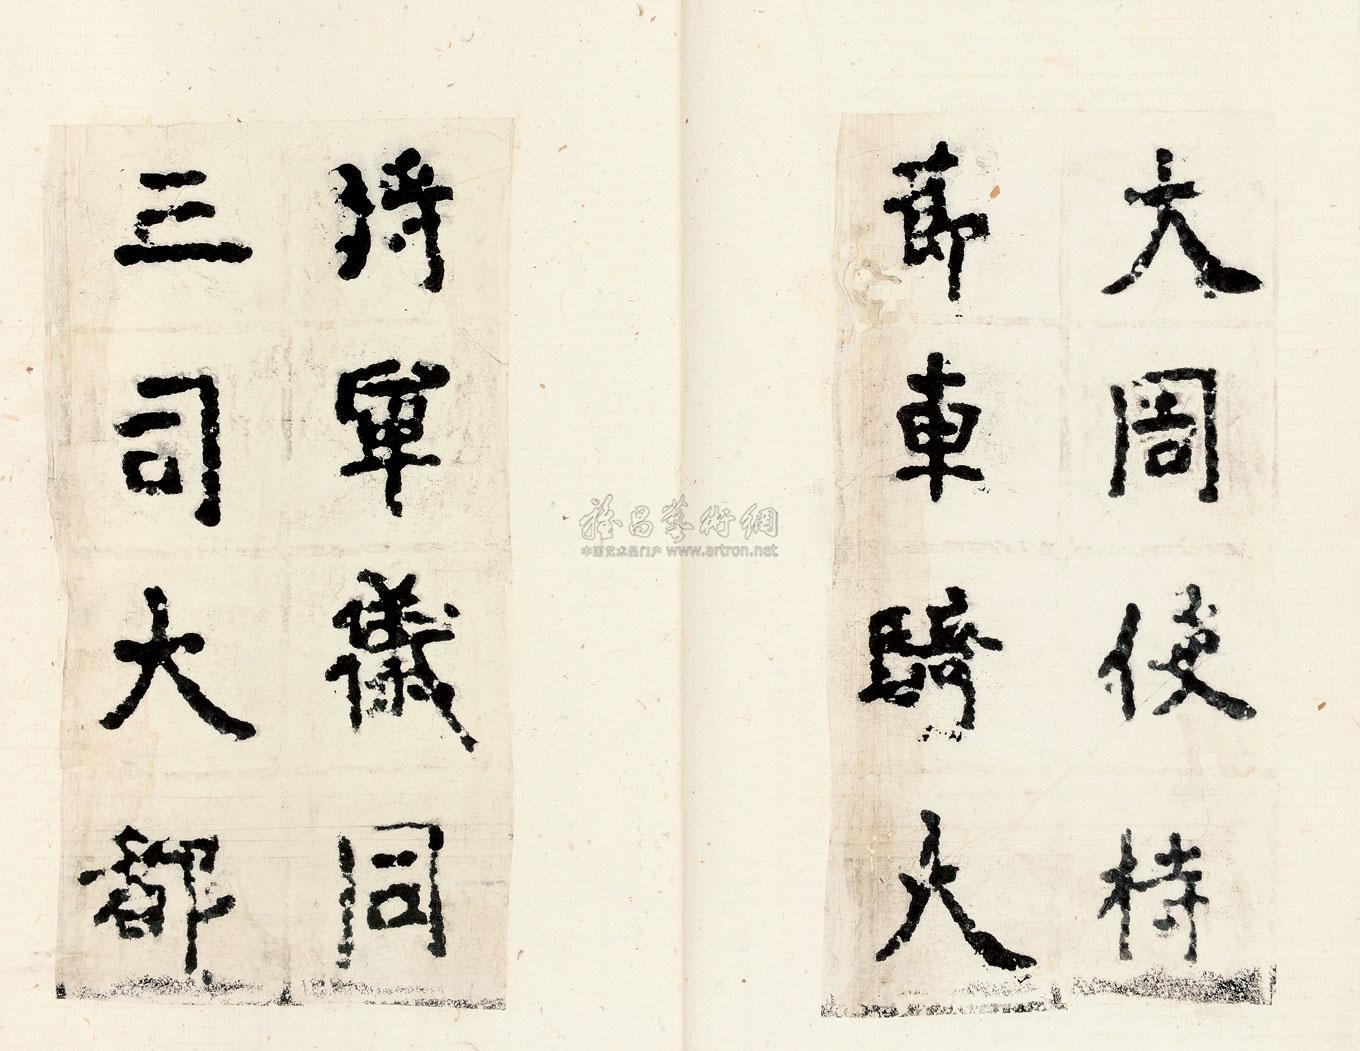 大周使持
節車騎大
將軍儀同
三司大都
雅昌藝術網
中国艺术品门户 www.artron.net